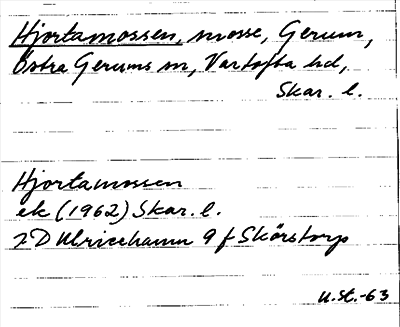 Hjortamossen, mosse, Gerum,
Östra Gerums sn, Vartofta hd,
Skar. l.
Hjortamossen
ek (1962) Skar. l.
7D Ulricehamn 9 f Skörstorp
U.St.-63